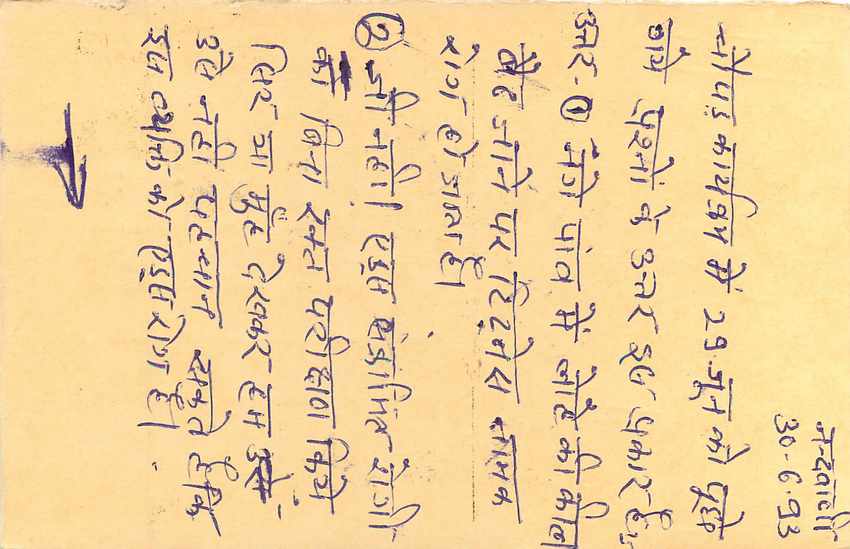 30-6-93
चौपड़ कार्यक्रम में 29 जून को पूछे
गये प्रश्नों के उत्तर इस प्रकार है:-
उत्तर-① नंगे पांव में लोहे की कील
बैठ जाने पर टिटनेस नामक
रोग हो जाता है।
② जी नहीं। एड्स संक्रामित रोगी
का बिना रक्त परीक्षण किये
सिर्फ मुँह देखकर हम उसे
उसे नहीं पहचान सकते है कि
इस व्यक्ति को एड्स रोग है।